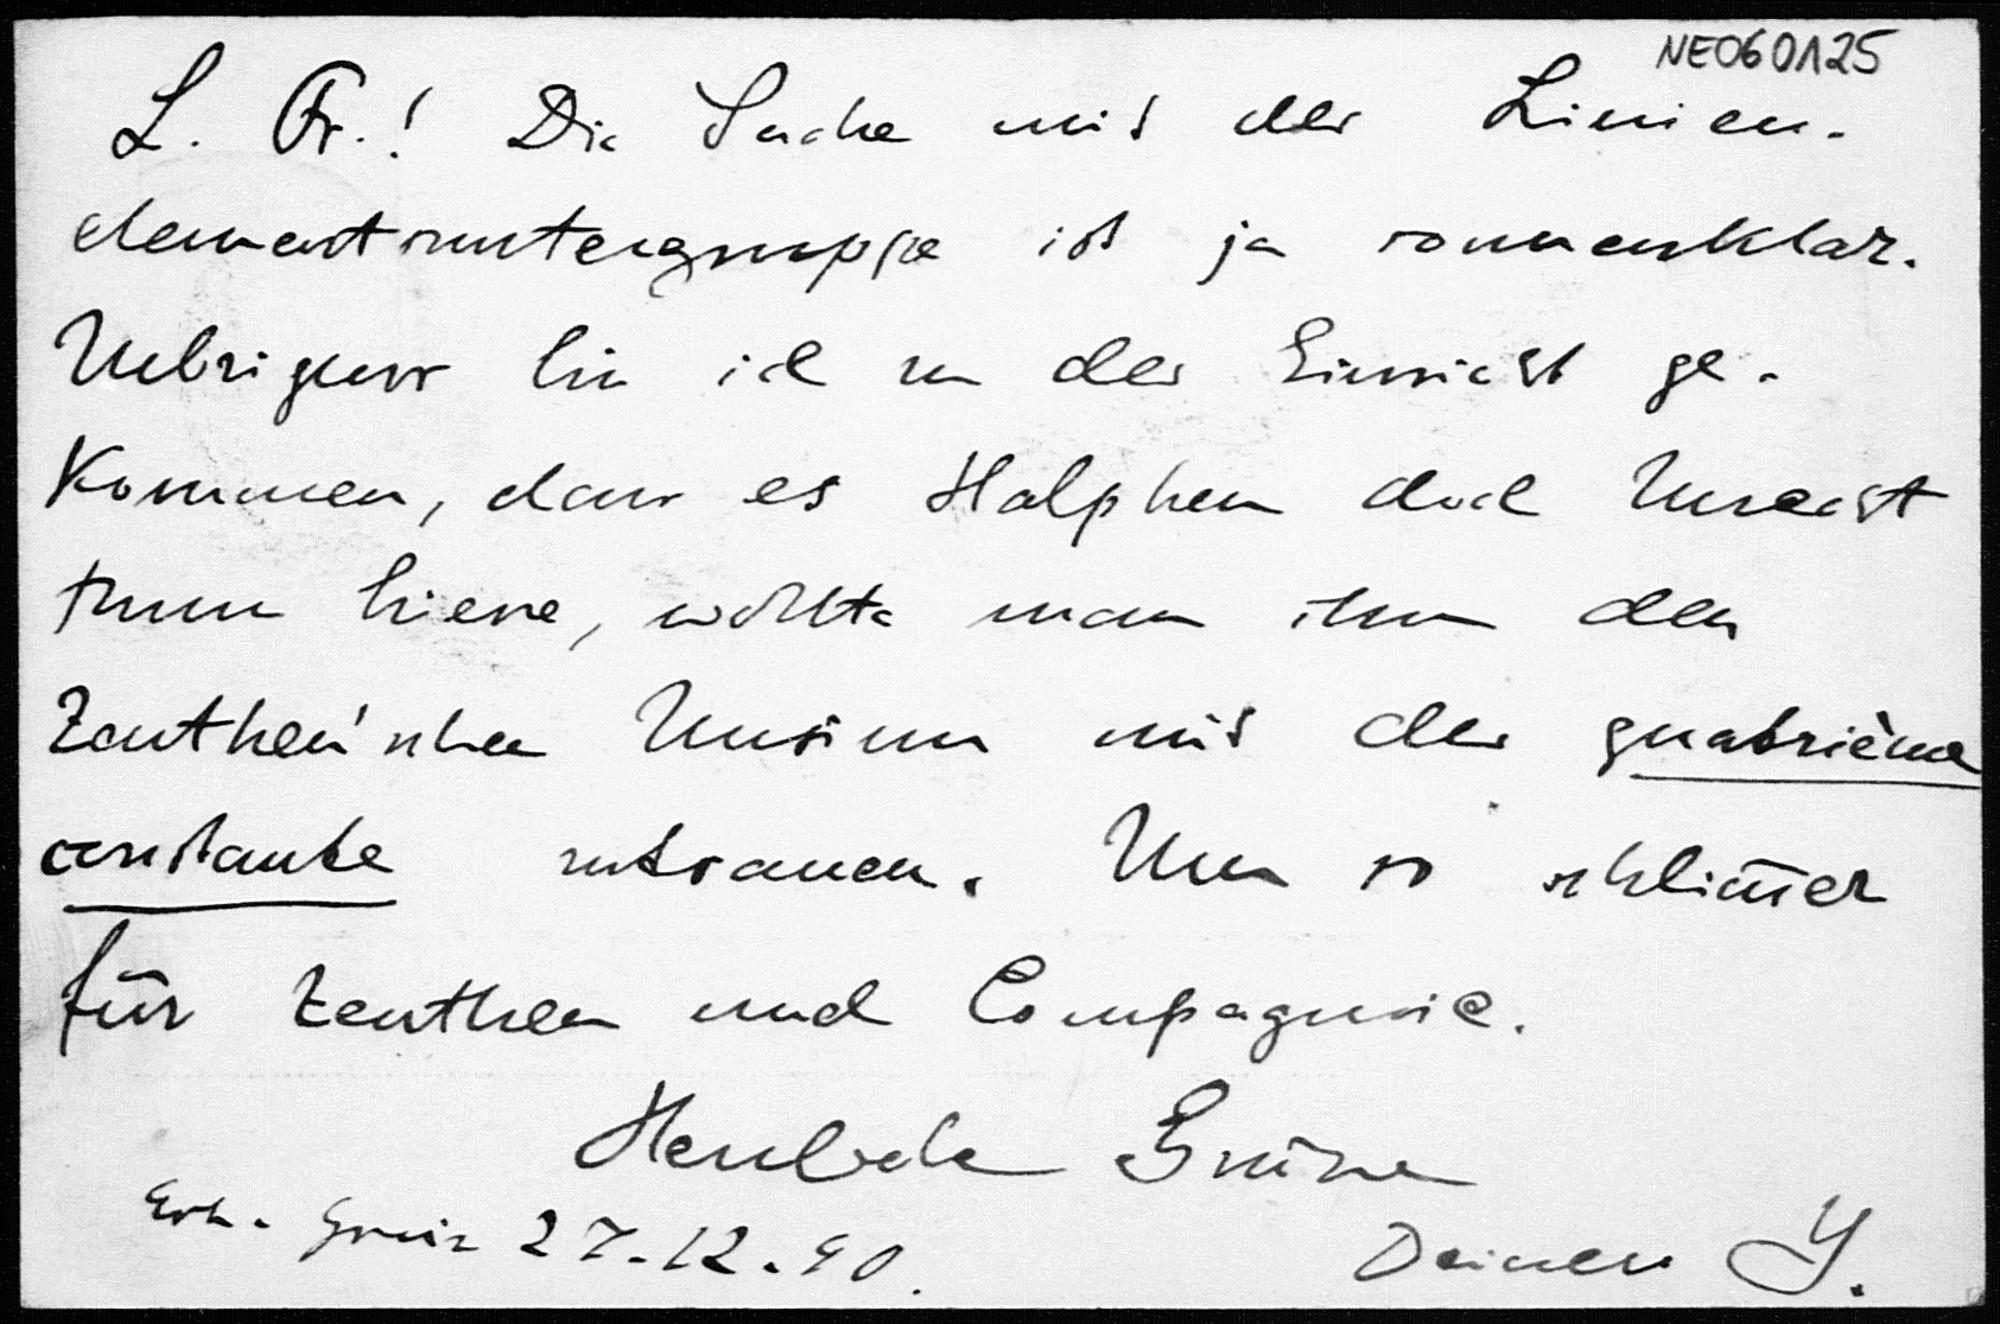 NE060125
L. Fr.! Die Sache mit der Linien-
elementuntergruppe ist ja sonnenklar.
Uebrigens bin ich zu der Einsicht ge-
kommen, dass es Halphen doch Unrecht
thun hiesse, wollte man ihm den
Zeuthen'schen Unsinn mit der quatrième
constante zutrauen. Um so schlim̅er
für Zeuthen und Compagnie.
Herzliche Grüsse
Deines Y.
27.12.90.